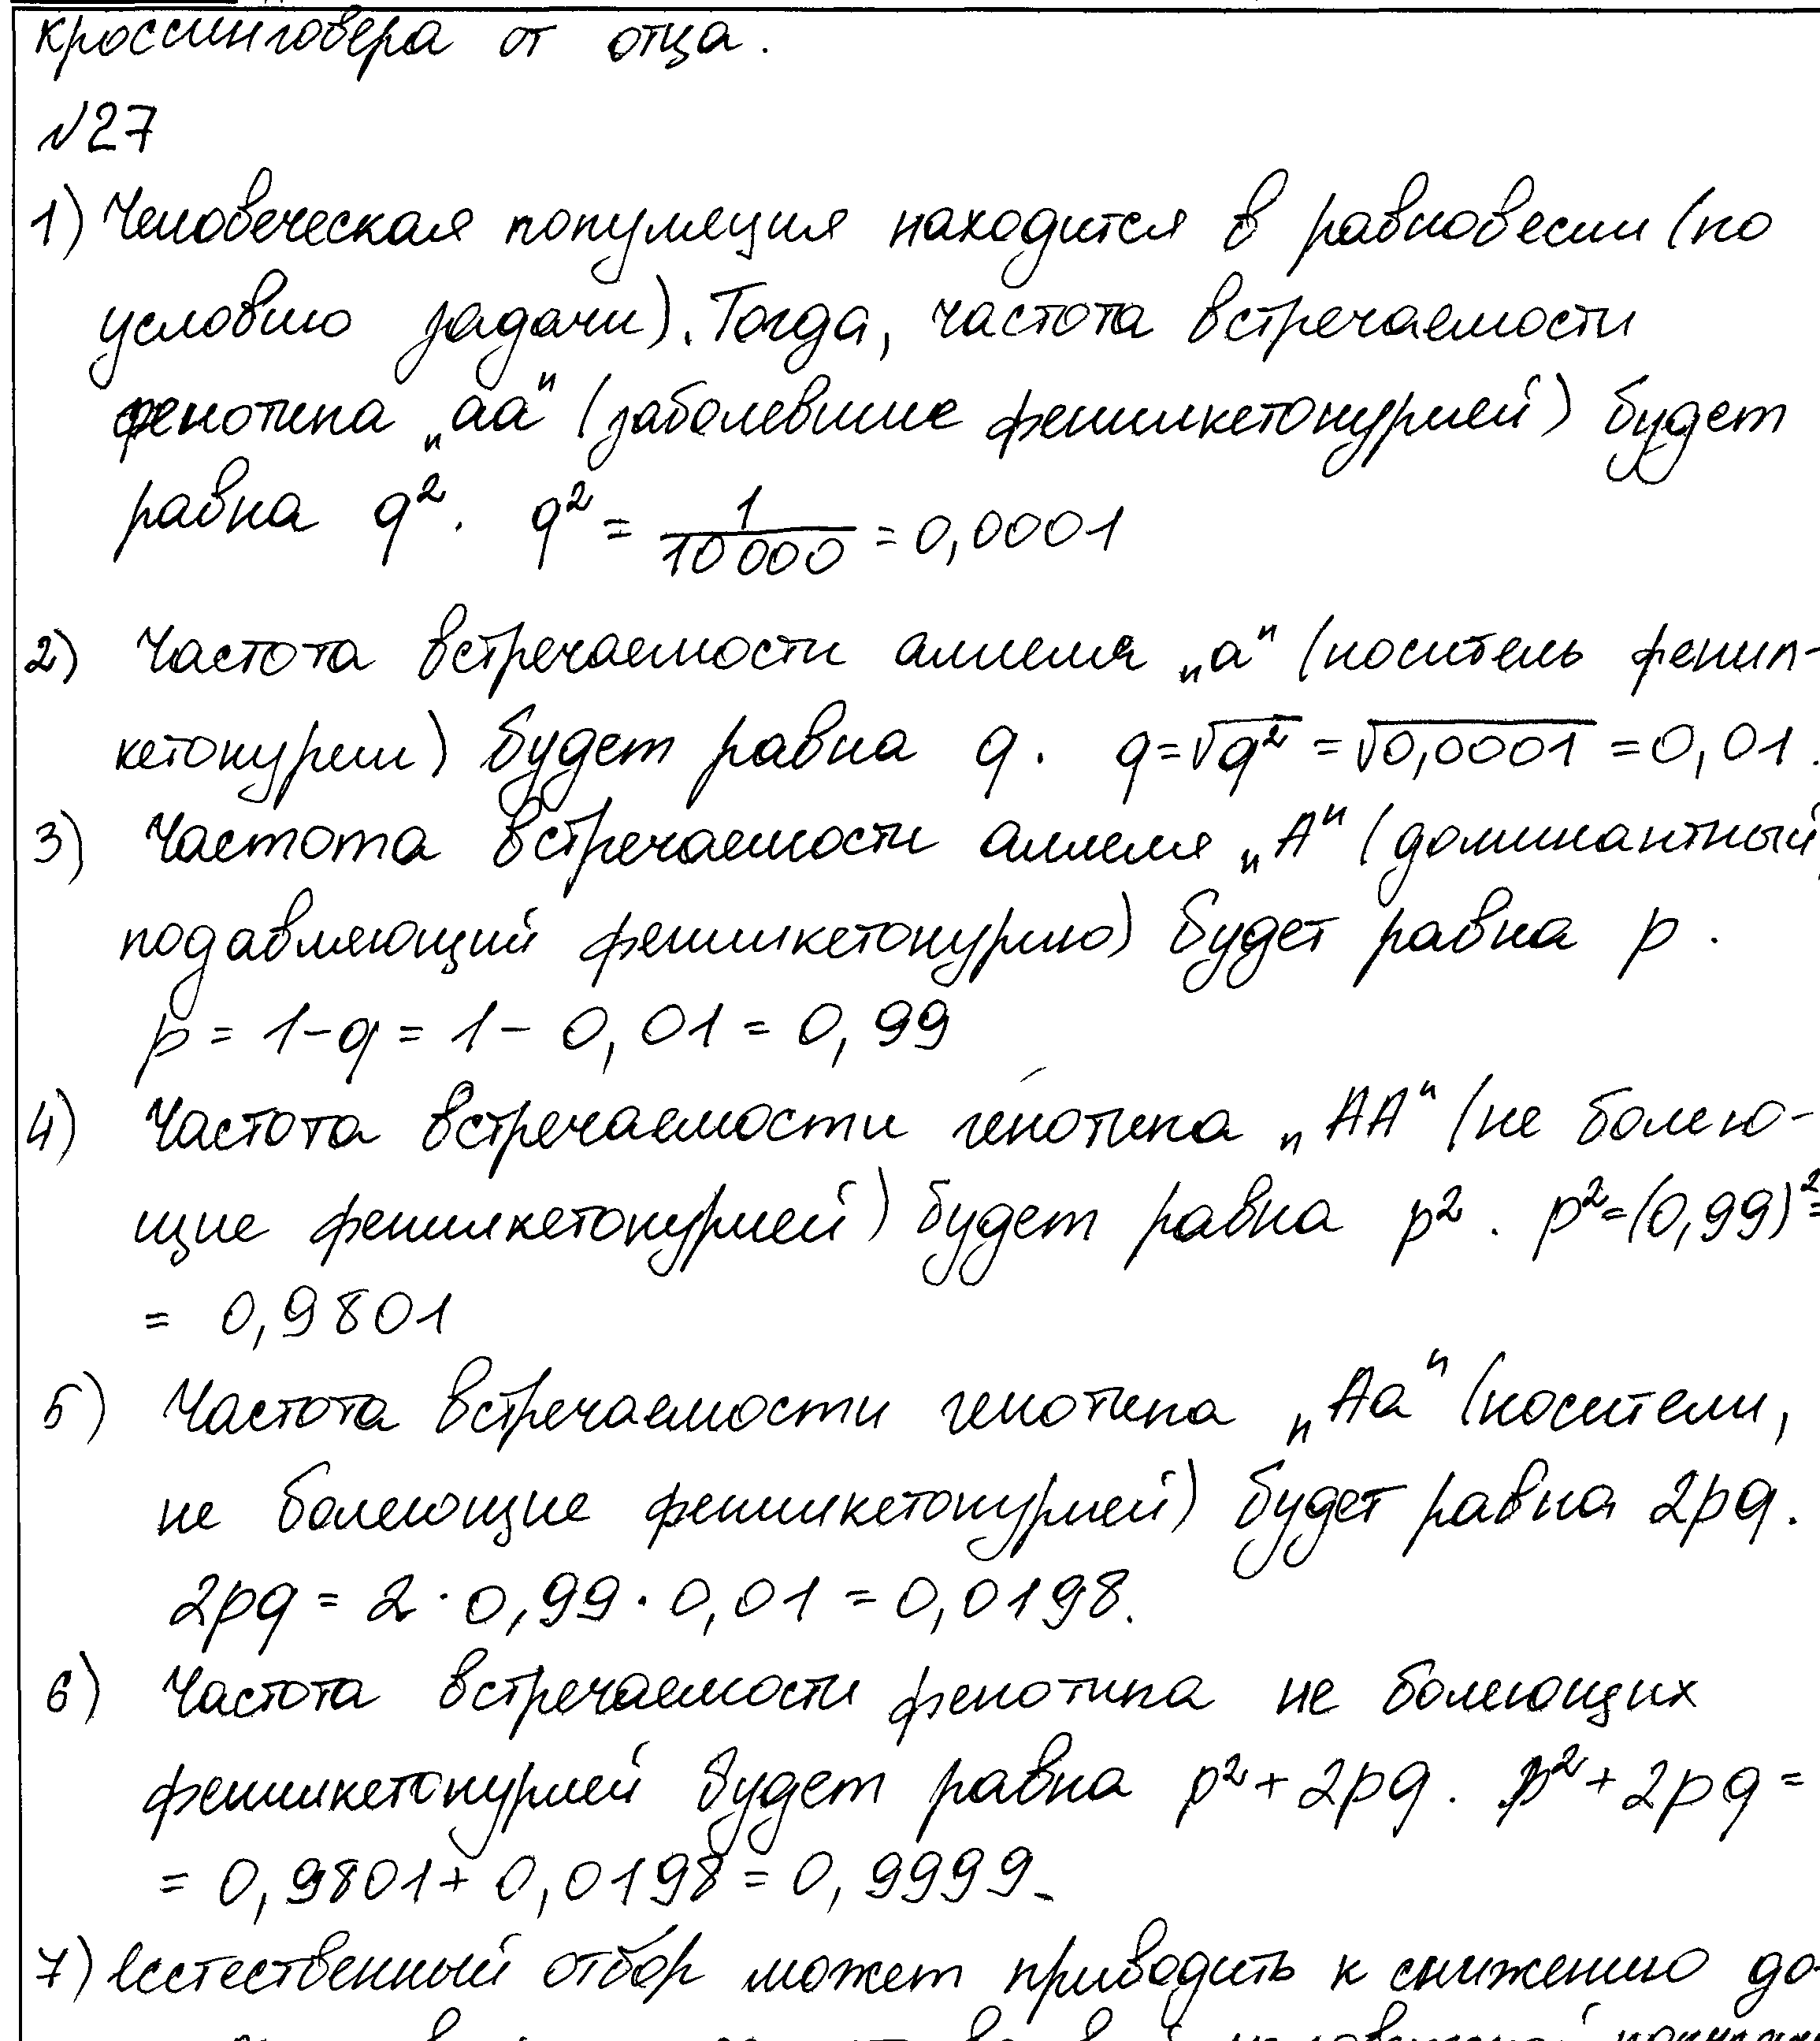 кроссинговера от отца.
№27
1) Человеческая популяция находится в равновесии (по
условию задачи). Тогда, частота встречаемости
фенотипа „аа" (заболевшие фенилкетонурией) будет
равна q². q² = 1/10000 = 0,0001
2) Частота встречаемости аллеля „а" (носитель фенил-
кетонурии) будет равна q. q=√q² = √0,0001 = 0,01.
3) Частота встречаемости аллеля „А" (доминантный,
подавляющий фенилкетонурию) будет равна p.
p = 1-q = 1 - 0,01 = 0,99
4) Частота встречаемости генотипа „АА" (не болею-
щие фенилкетонурией) будет равна p². p²=(0,99)²=
= 0,9801
5) Частота встречаемости генотипа „Аа" (носители,
не болеющие фенилкетонурией) будет равна 2pq.
2pq = 2·0,99·0,01 = 0,0198.
6) Частота встречаемости фенотипа не болеющих
фенилкетонурией будет равна p²+2pq. p²+2pq =
= 0,9801+ 0,0198 = 0,9999.
7) Естественный отбор может приводить к снижению до-